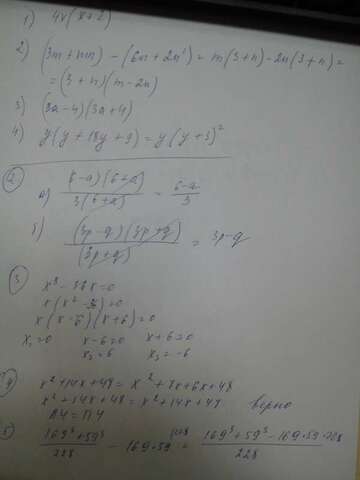 1) 4x(x+2)
2) (3m+mn) - (6n+2n²) = m(3+n) - 2n(3+n) =
= (3+n)(m-2n)
3) (3a-4)(3a+4)
4) y(y+18y+9) = y(y+3)²
2
а) (6-a)(6+a) / 3(6+a) = 6-a / 3
б) (3p-q)(3p+q) / (3p+q) = 3p-q
3
x³-36x=0
x(x²-36)=0
x(x-6)(x+6)=0
x₁=0 x-6=0 x+6=0
x₂=6 x₃=-6
4
x²+14x+48 = x²+8x+6x+48
x²+14x+48 = x²+14x+48 верно
Л.Ч = П.Ч
5 169³+59³ / 228 - 169·59 = 169³+59³-169·59·228 / 228